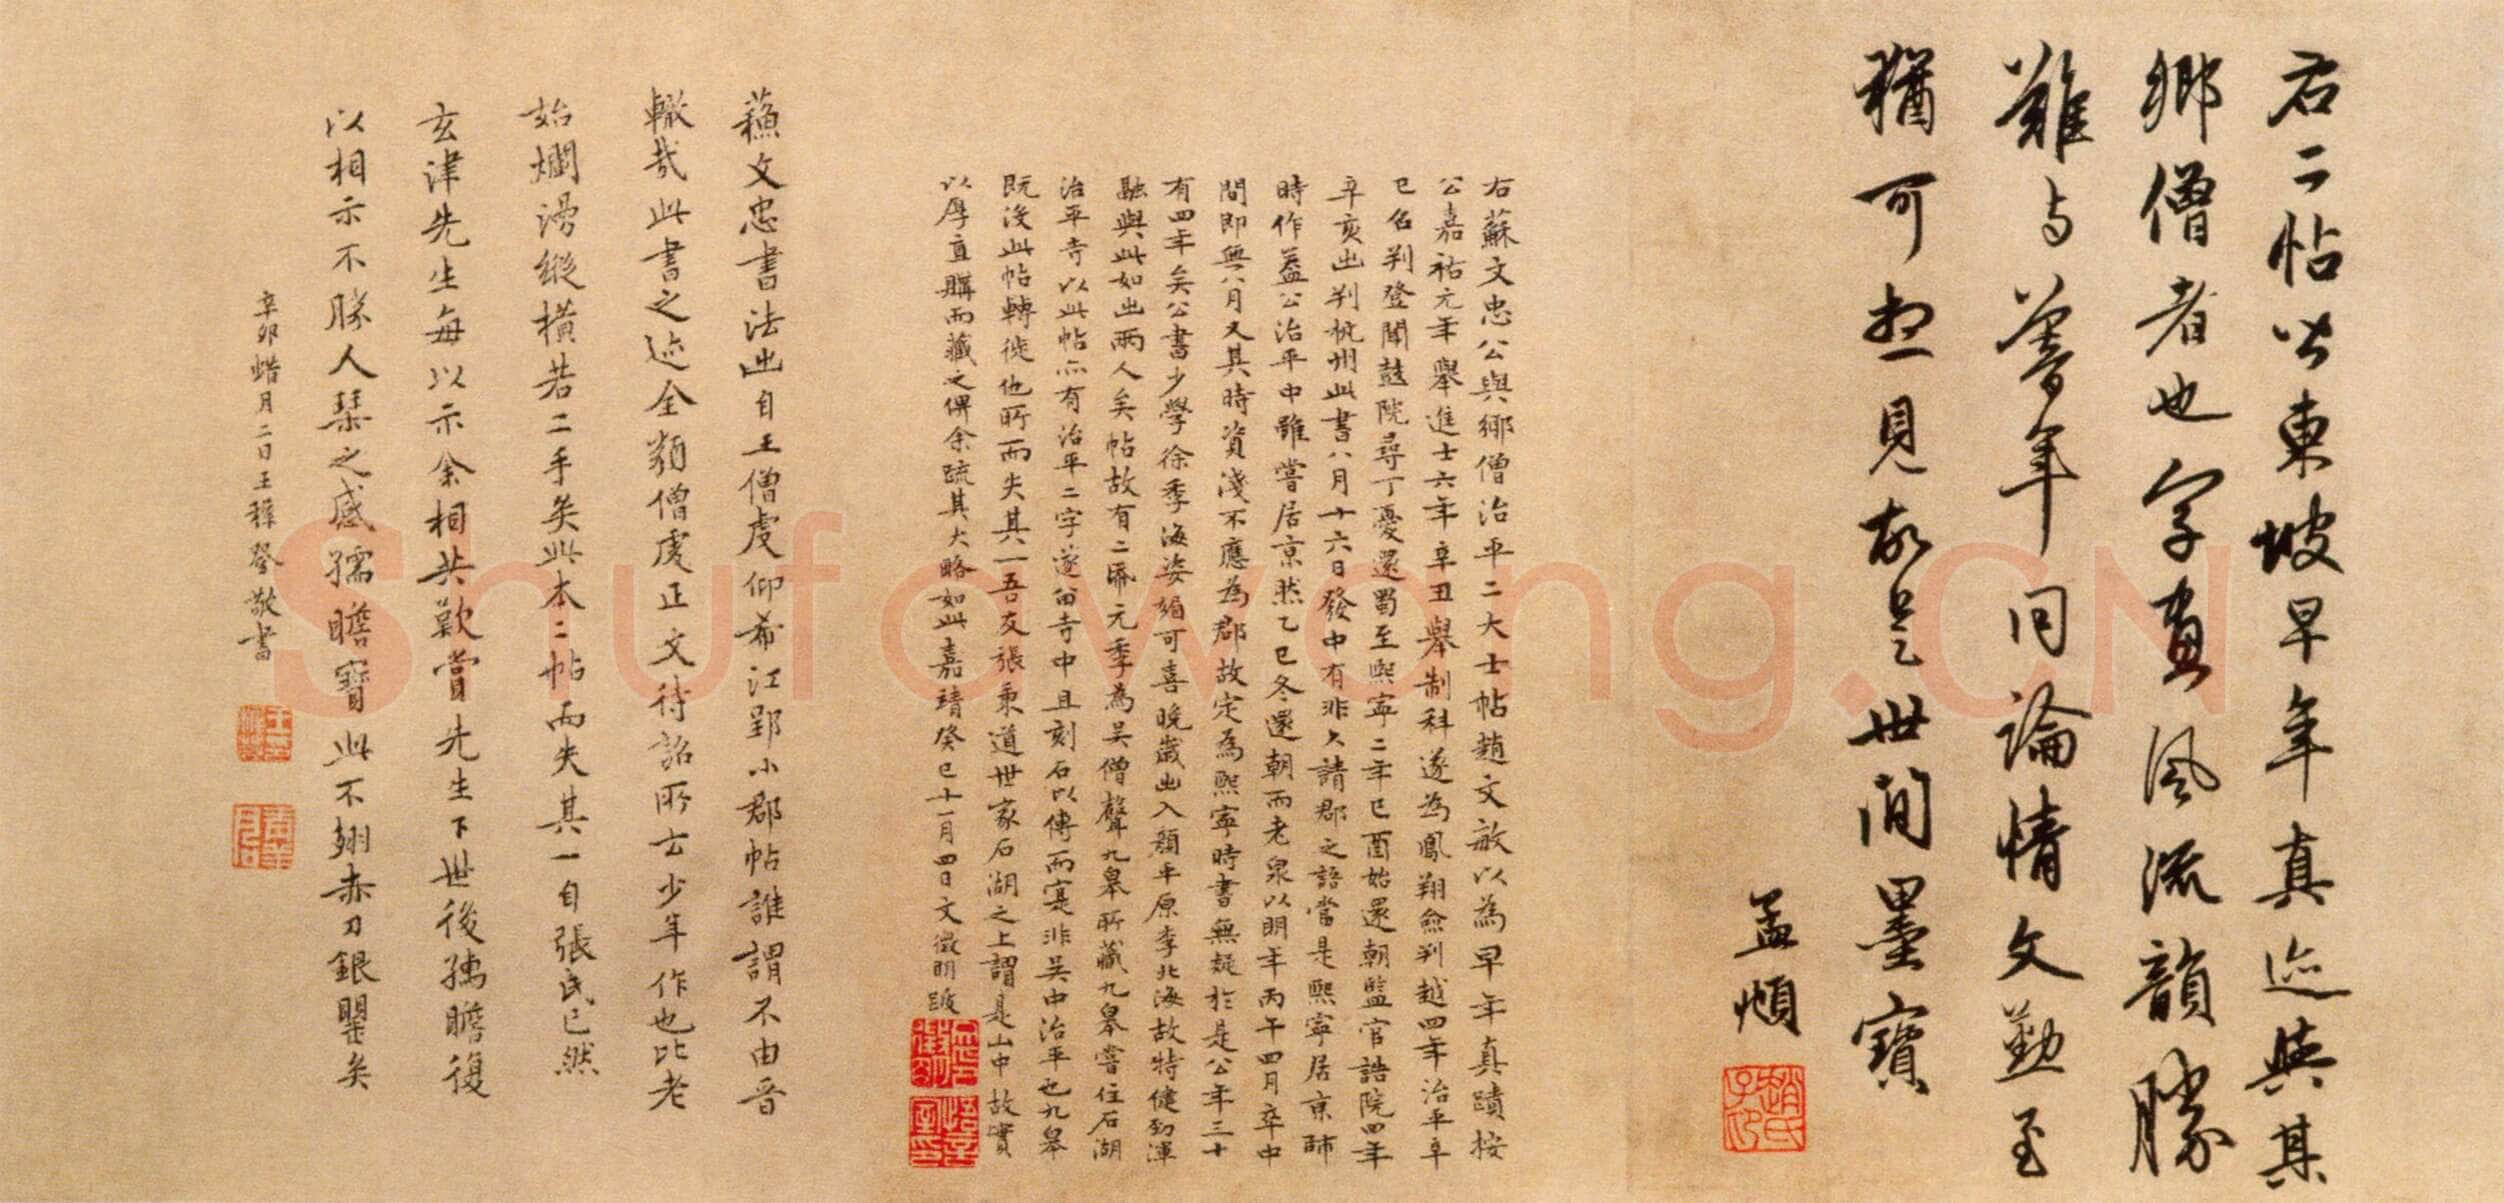 右二帖皆東坡早年真迹與其
鄉僧者也字畫風流韻勝
難与暮年同論情文勤至
猶可想見故是世間墨寶
孟頫
右蘇文忠公與鄉僧治平二大士帖趙文敏以為早年真蹟按
公嘉祐元年舉進士六年辛丑舉制科遂為鳳翔僉判越四年治平
乙巳召判登聞鼓院尋丁憂還蜀至熙寧二年己酉始還朝監官誥院四年
辛亥出判杭州此書八月十六日發中有非久請郡之語當是熙寧居京師
時作蓋公治平中雖嘗居京然乙巳冬還朝而老泉以明年丙午四月卒中
間即無八月又其時資淺不應為郡故定為熙寧時書無疑於是公年三十
有四年矣公書少學徐季海姿媚可喜晚歲出入顏平原李北海故特健勁渾
融與此如出兩人矣帖故有二元季為吳僧聲九皋所藏九皋嘗住石湖
治平寺以此帖亦有治平二字遂留寺中且刻石以傳而寔非吳中治平也九皋
既沒此帖轉徙他所而失其一吾友張秉道世家石湖之上謂是山中故實
以厚直購而藏之俾余疏其大略如此嘉靖癸巳十一月四日文徵明跋
蘇文忠書法出自王僧虔仰希江郢小郡帖誰謂不由晉
轍哉此書之迹全類僧虔正文待詔所云少年作也比老
始爛漫縱橫若二手矣此本二帖而失其一自張氏已然
玄津先生每以示余相共歎賞先生下世後孺瞻復
以相示不勝人琴之感孺瞻寶此不翅赤刀銀甖矣
辛卯蜡月二日王穉登敬書
Shufawang.CN